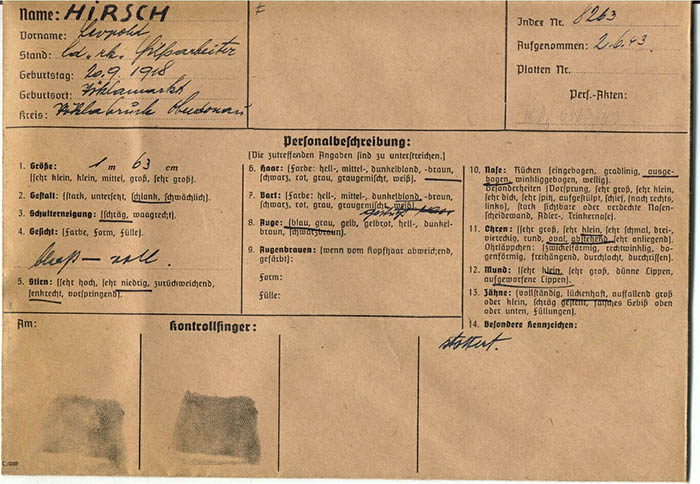 Name: HIRSCH
Vorname: Leopold
Stand: led. rk. Hilfsarbeiter
Geburtstag: 20.9.1918
Geburtsort: Vöklamarkt
Kreis: Vöklabruck Oberdonau
Index Nr. 8263
Aufgenommen: 2.6.43
Platten Nr.
Pers.-Akten:
1. Größe: 1 m 63 cm
(sehr klein, klein, mittel, groß, sehr groß).
2. Gestalt: (stark, untersetzt, schlank, schwächlich).
3. Schulterneigung: (schräg, waagrecht).
4. Gesicht: (Farbe, Form, Fülle).
blaß – voll.
5. Stirn: (sehr hoch, sehr niedrig, zurückweichend,
senkrecht, vorspringend).
Personalbeschreibung:
(Die zutreffenden Angaben sind zu unterstreichen.)
6. Haar: (Farbe: hell-, mittel-, dunkelblond, -braun,
schwarz, rot, grau, graugemischt, weiß).
7. Bart: (Farbe: hell-, mittel-, dunkelblond, -braun,
schwarz, rot, grau, graugemischt, weiß)
8. Auge: (blau, grau, gelb, gelbrot, hell-, dunkel-
braun, schwarzbraun).
9. Augenbrauen: (wenn vom Kopfhaar abweichend,
gefärbt):
Form:
Fülle:
10. Nase: Rücken (eingebogen, gradlinig, ausge-
bogen, winkliggebogen, wellig).
Besonderheiten (Vorsprung, sehr groß, sehr klein,
sehr dick, sehr spitz, aufgestülpt, schief, (nach rechts,
links), stark sichtbare oder verdeckte Nasen-
scheidewand, Adler-, Trinkernase).
11. Ohren: (sehr groß, sehr klein, sehr schmal, drei-,
viereckig, rund, oval, abstehend, sehr anliegend).
Ohrläppchen: (zwickelförmig, rechtwinklig, bo-
genförmig, freihängend, durchlocht, durchrissen).
12. Mund: (sehr klein, sehr groß, dünne Lippen,
aufgeworfene Lippen).
13. Zähne: (vollständig, lückenhaft, auffallend groß
oder klein, schräg gestellt, falsches Gebiß oben
oder unten, Füllungen).
14. Besondere Kennzeichen:
stottert.
Am:
Kontrollfinger: